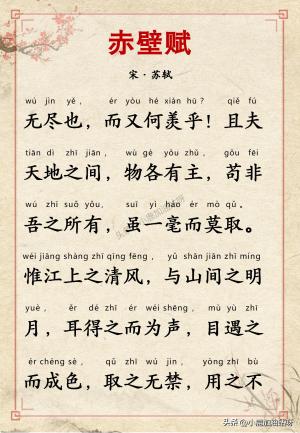 赤壁赋
宋·苏轼
wú jìn yě, ér yòu hé xiàn hū? qiě fú
无尽也，而又何羡乎！且夫
tiān dì zhī jiān, wù gè yǒu zhǔ, gǒu fēi
天地之间，物各有主，苟非
wú zhī suǒ yǒu, suī yì háo ér mò qǔ。
吾之所有，虽一毫而莫取。
wéi jiāng shàng zhī qīng fēng, yǔ shān jiān zhī míng
惟江上之清风，与山间之明
yuè, ěr dé zhī ér wéi shēng, mù yù zhī
月，耳得之而为声，目遇之
ér chéng sè, qǔ zhī wú jìn, yòng zhī bù
而成色，取之无禁，用之不